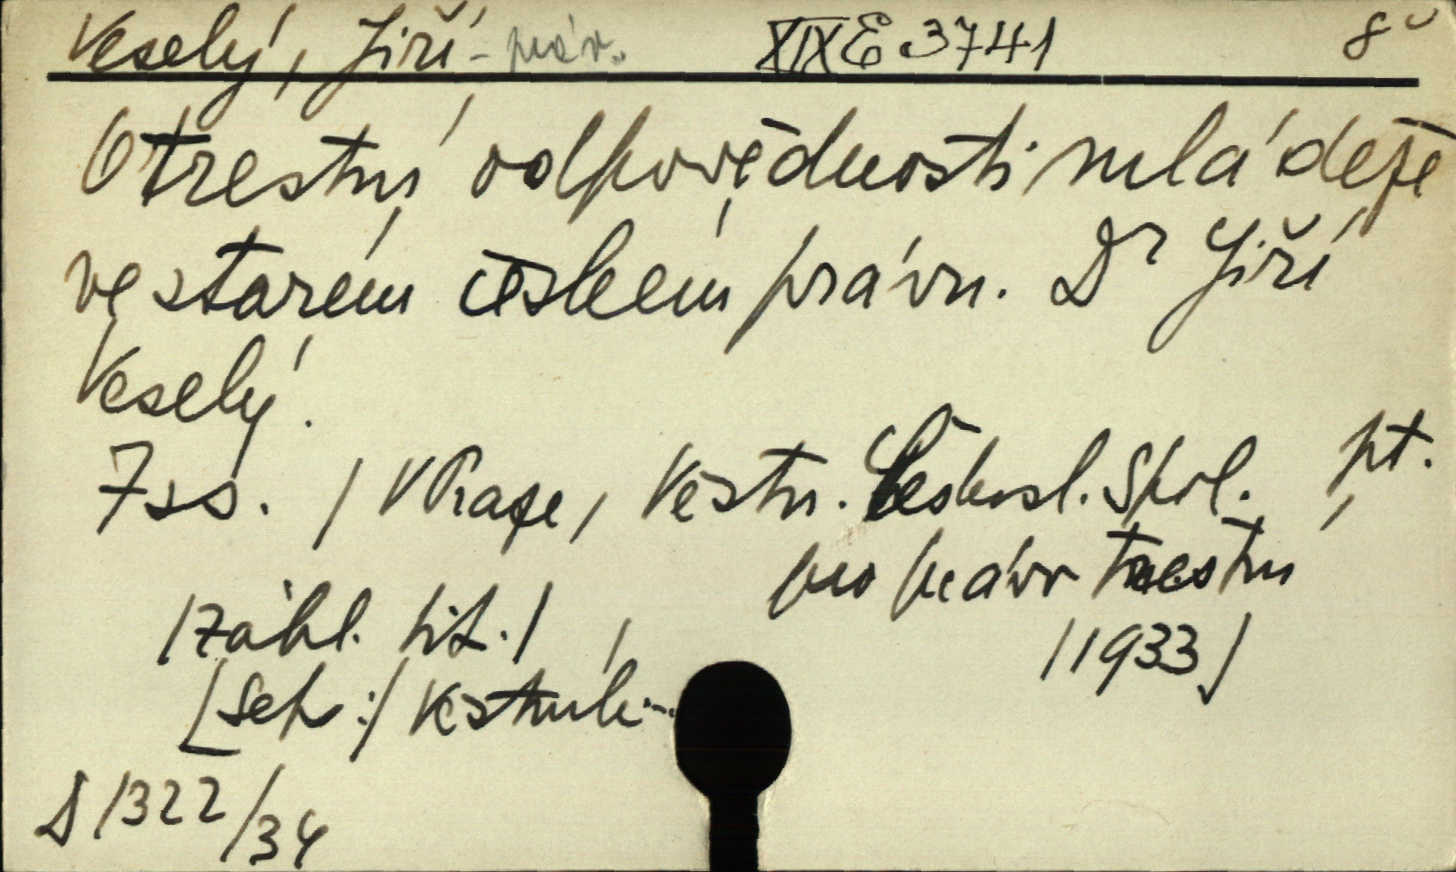 Veselý, Jiří - práv. XIX E 3741 8°
O trestní odpovědnosti mládeže
ve starém českém právu. Dr Jiří
Veselý.
7 ss. / V Praze, Věstn. Českosl. Spol. pt.
pro právo trestní
/Záhl. tit./ /1933/
[Sep:/ Věstník--
D 1322/34